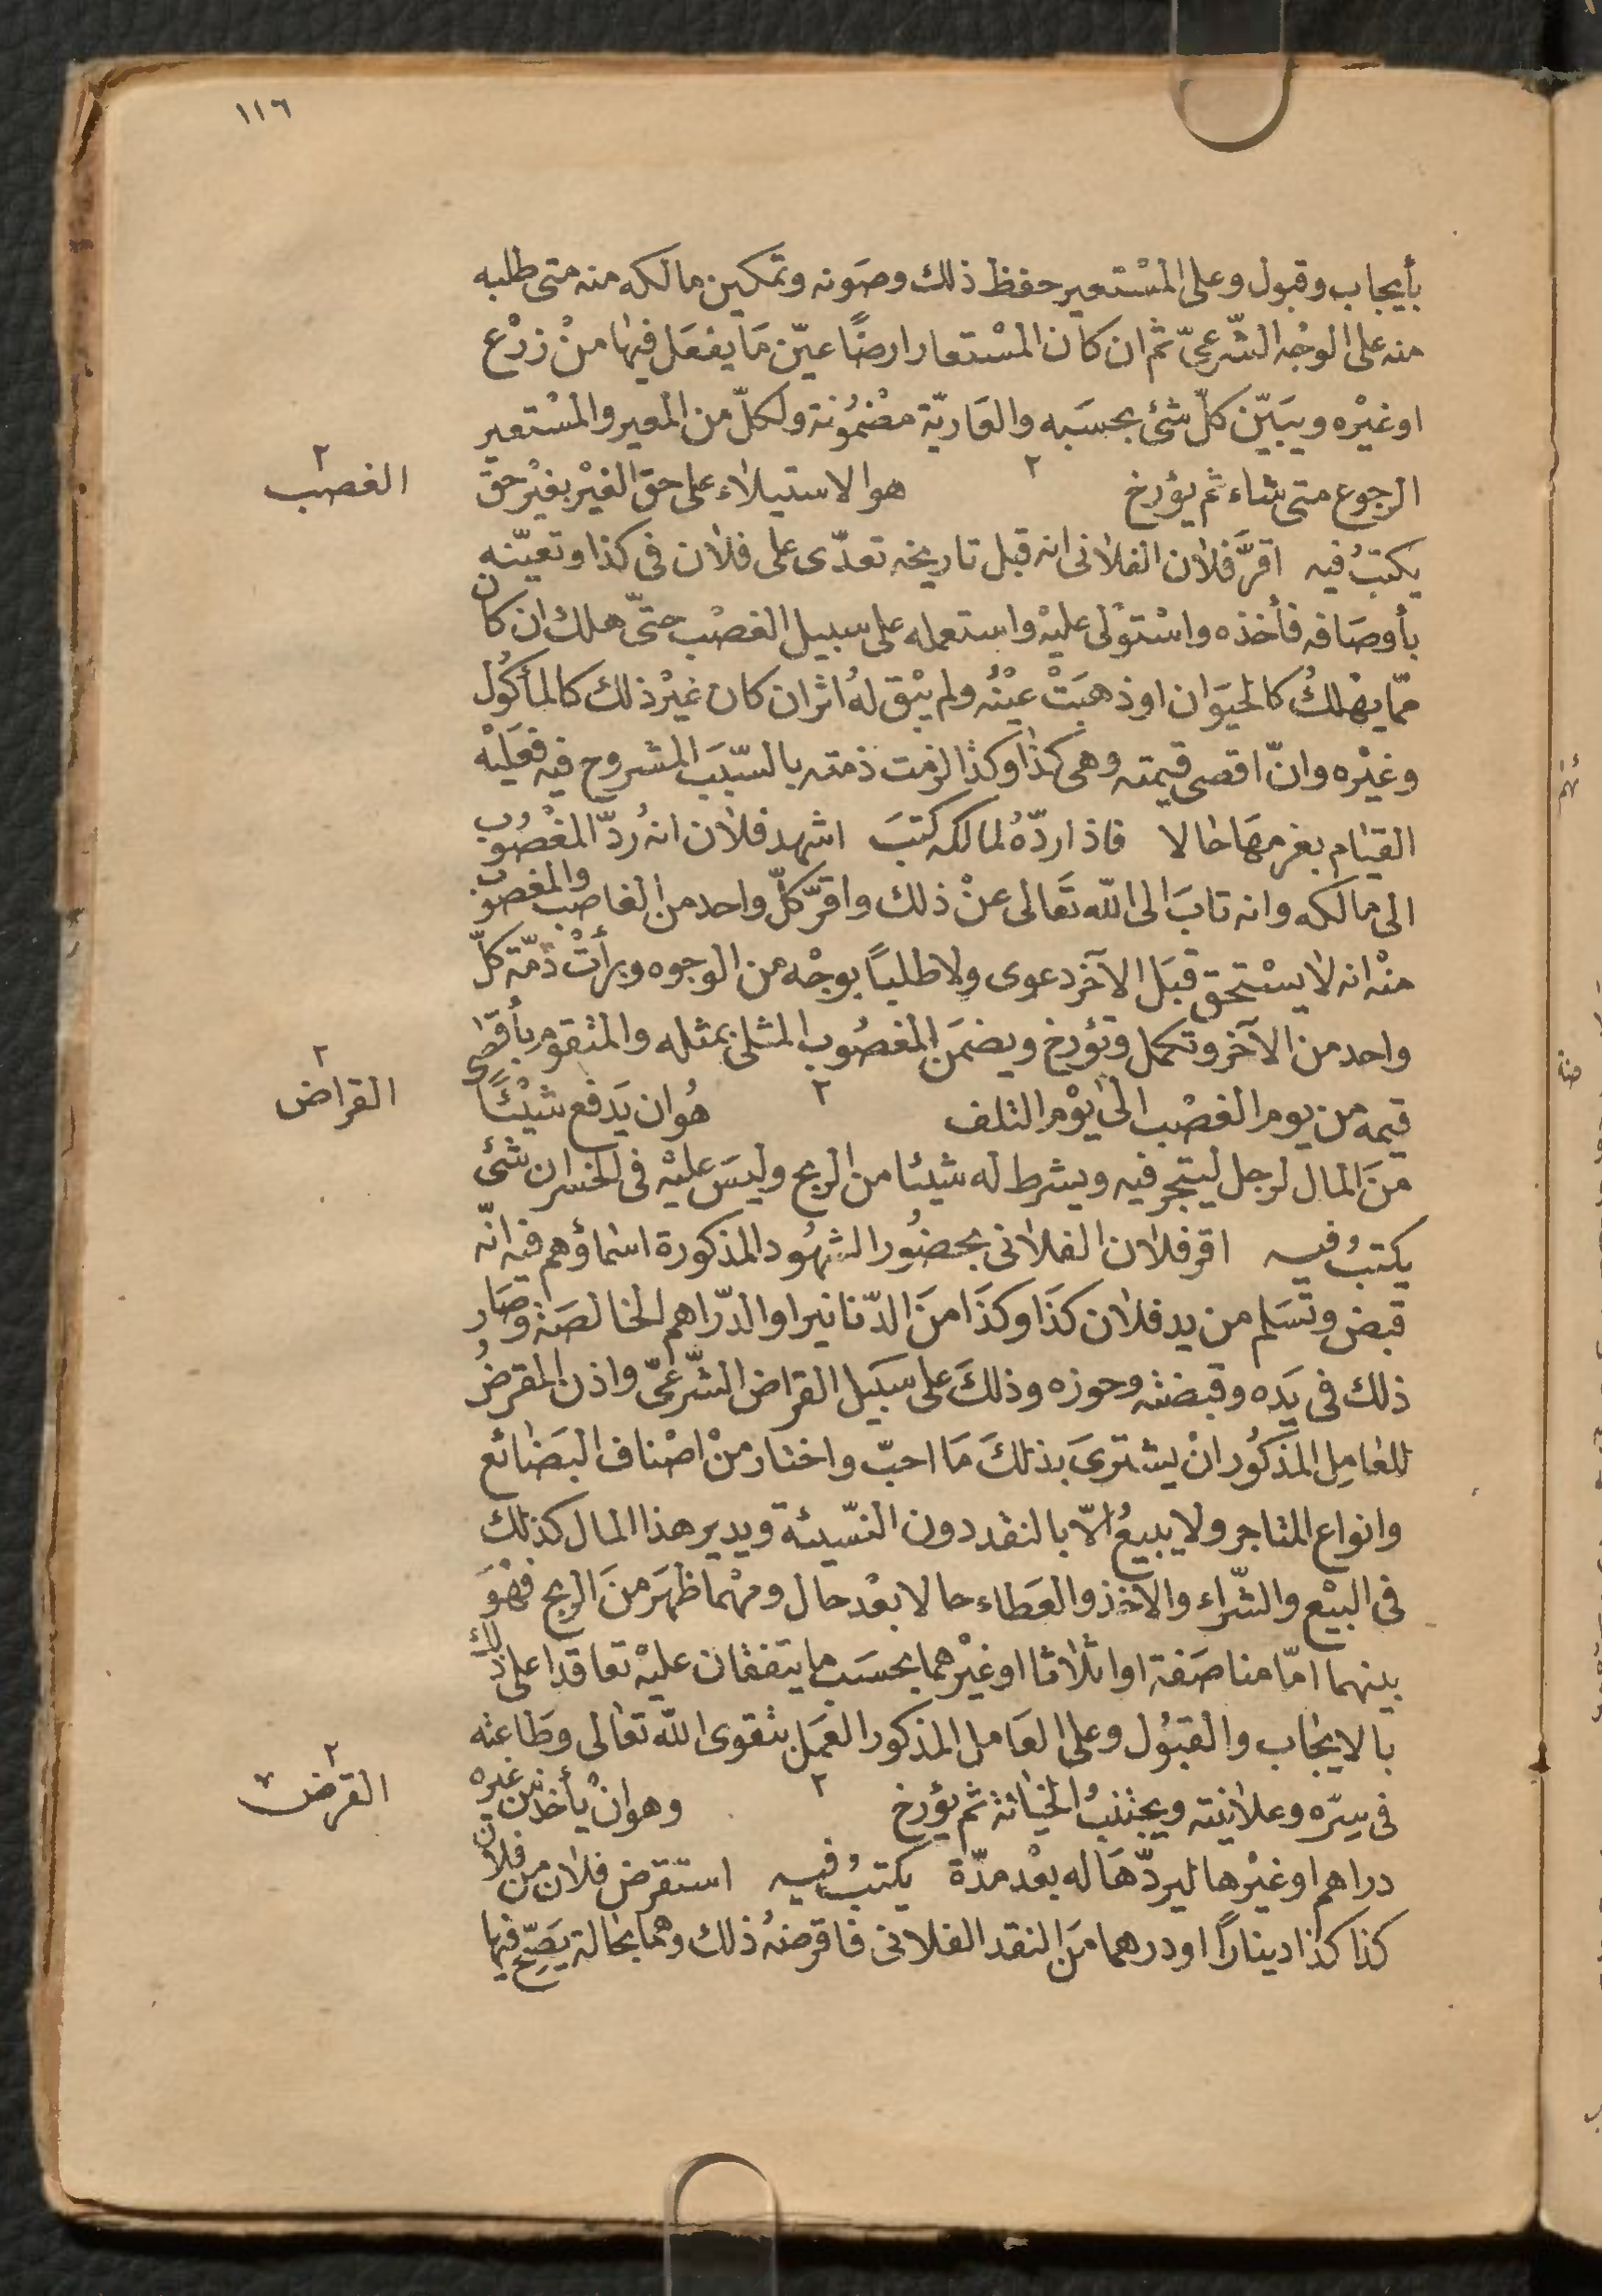 ١١٦
بأيجاب وقبول وعلى المسْتعير حفظ ذلك وصَونه وتمكين مالكه منه متى طلبه
منه على الوجْه الشّرعىّ ثم ان كان المسْتعار ارضًا عيّن مَا يفعَل فيها منْ زرْع
اوغيْره ويبَيّن كلّ شئ بحسَبه والعَاريّة مضْمُونة ولكلّ من المعير والمسْتعير
الرجوع متى شاء ثم يؤرخ ٢ هو الاستيلاء على حق الغيْر بغيْر حق
٢ الغصب
يكتبُ فيه اقرَّ فلان الفلانى انه قبل تاريخه تعدّى على فلان فى كذا وتعيّنه
بأوصَافه فأخذه واسْتولى عليْه واستعمله على سبيل الغصْب حتّى هلك ان كان
ممّا يهْلكُ كالحيَوان اوذهبَتْ عيْنُه ولم يبْق لهُ اثر ان كان غيْر ذلك كالمأكُول
وغيْره وانّ اقصى قيمته وهى كذا وكذا لزمت ذمته بالسّبَب المشروح فيه فعَليْه
القيام بغرمهَا حالا فاذا ردّهُ لمالكه كتبَ اشهد فلان انهُ ردّ المغْصُوب
الى مالكه وانه تابَ الى اللّه تعَالى عنْ ذلك واقرَّ كلّ واحد من الغاصب والمغصوب
منْه انه لا يسْتحق قبَل الآخر دعوى ولا طلبًا بوجْه من الوجوه وبرأتْ ذمّة كلّ
واحد من الآخر وتكمل وتؤرخ ويضمَن المغصُوب المثلى بمثله والمتقوم بأقصى
قيمه من يوم الغصْب الى يوْم التلف ٢ هُو ان يَدفع شيْئًا
٢ القراض
منَ المال لرجل ليتجر فيه ويشرط له شيئا من الربح وليسَ عليْه فى الخسران شئ
يكتبُ فيه اقر فلان الفلانى بحضُور الشهُود المذكورة اسماؤهم فيه انّه
قبض وتسَلم من يد فلان كذَا وكذَا منَ الدّنانير او الدّراهم الخالصَة وصَار
ذلك فى يَده وقبضته وحوزه وذلكَ على سبَيل القراض الشّرعىّ واذن المقرضُ
للعامِل المذكُور انْ يشترىَ بذلكَ مَا احبّ واختار منْ اصْناف البَضائع
وانواع المتاجر ولا يبيعُ الّا بالنقد دون النّسيئة ويدير هذا المال كذلك
فى البيْع والشّراء والاخْذ والعَطاء حالا بعْد حال ومهْما ظهَر منَ الربح فهْوَ
بينهما امّا مناصَفة او اثلاثا اوغيْرهما بحسَب ما يتفقان عليْه تعاقدا على ذلك
بالايجاب والقبُول وعلى العَامل المذكور العَمل بتقوى اللّه تعالى وطَاعته
فى سِرّه وعلانيَته ويجتنبُ الخيَانة ثم يؤرخ ٢ وهو انْ يأخذ من غيره
٢ القرض
دراهم اوغيْرها ليردّهَا له بعْد مدّة يكتبُ فيه استقرض فلان من فلان
كذا كذا دينارًا اودرهما منَ النقد الفلانى فاقرضهُ ذلك وهما بحَالة يَصِحّ فيها